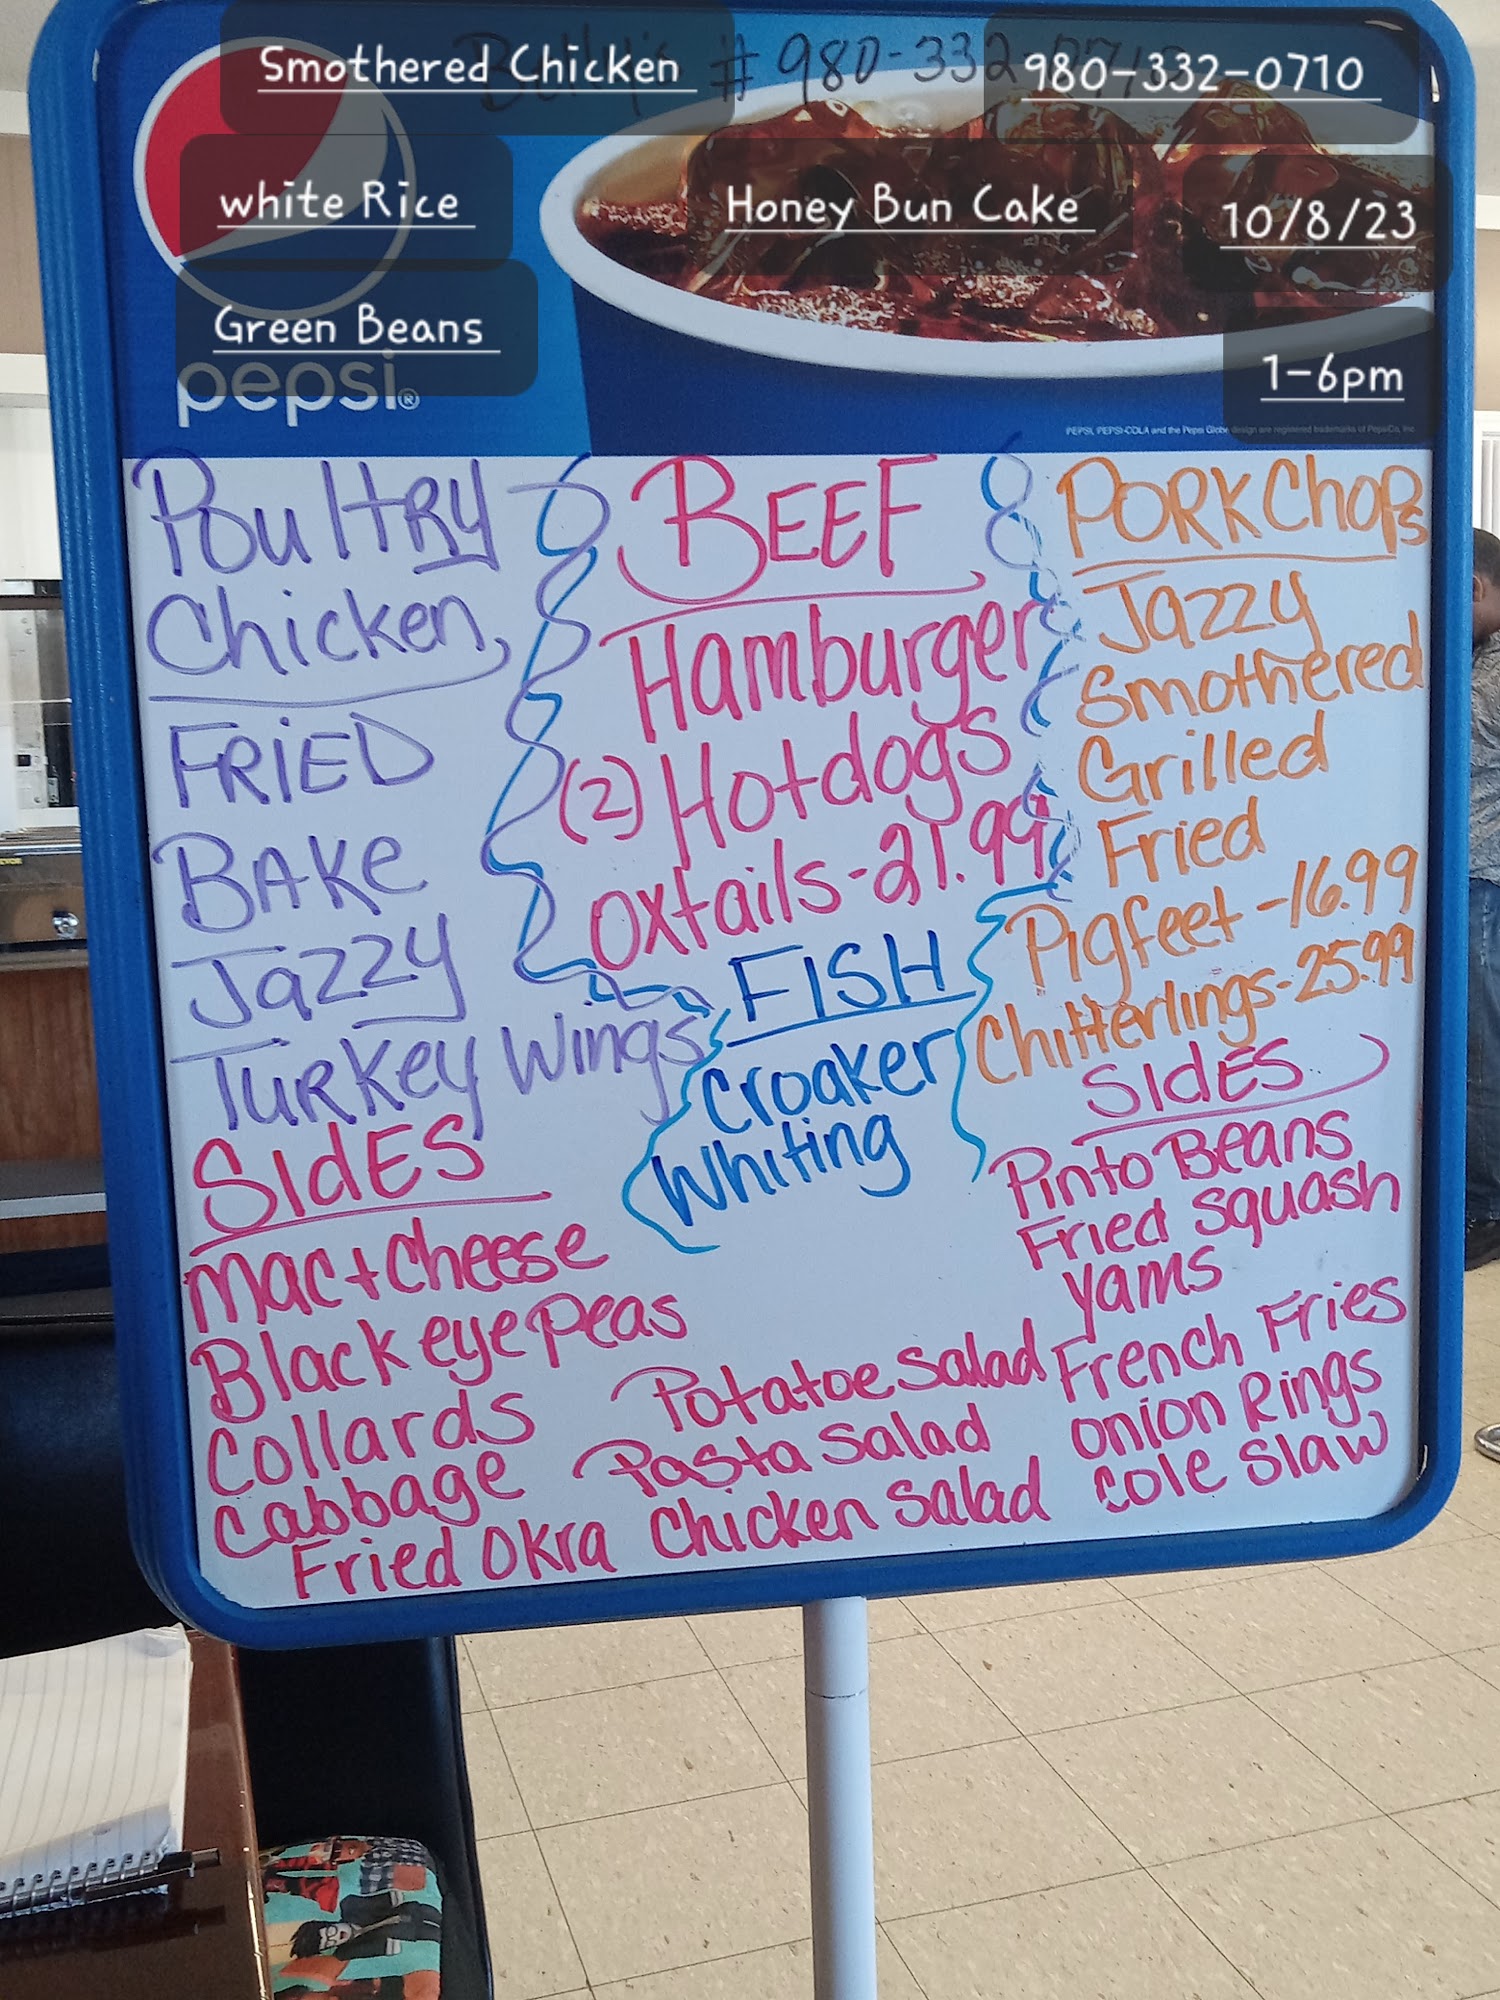 Smothered Chicken
# 980-332-0710
980-332-0710
white Rice
Honey Bun Cake
10/8/23
Green Beans
1-6pm
pepsi®
PEPSI, PEPSI-COLA and the Pepsi Globe design are registered trademarks of PepsiCo, Inc.
Poultry
Chicken
FRiED
BAKe
Jazzy
Turkey Wings
BEEF
Hamburger
(2) Hotdogs
oxtails-21.99
FISH
Croaker
Whiting
PORK Chops
Jazzy
Smothered
Grilled
Fried
Pigfeet -16.99
Chitterlings-25.99
SIdES
Mac + Cheese
Black eye peas
Collards
Cabbage
Fried Okra
Potatoe Salad
Pasta Salad
Chicken Salad
SIdES
Pinto Beans
Fried Squash
Yams
French Fries
Onion Rings
Cole Slaw